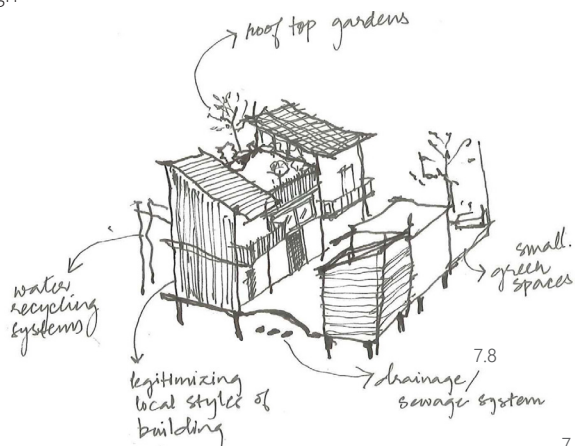 roof top gardens
small.
green
spaces
water
recycling
systems
legitimizing
local styles of
building
7.8
drainage/
sewage system
7